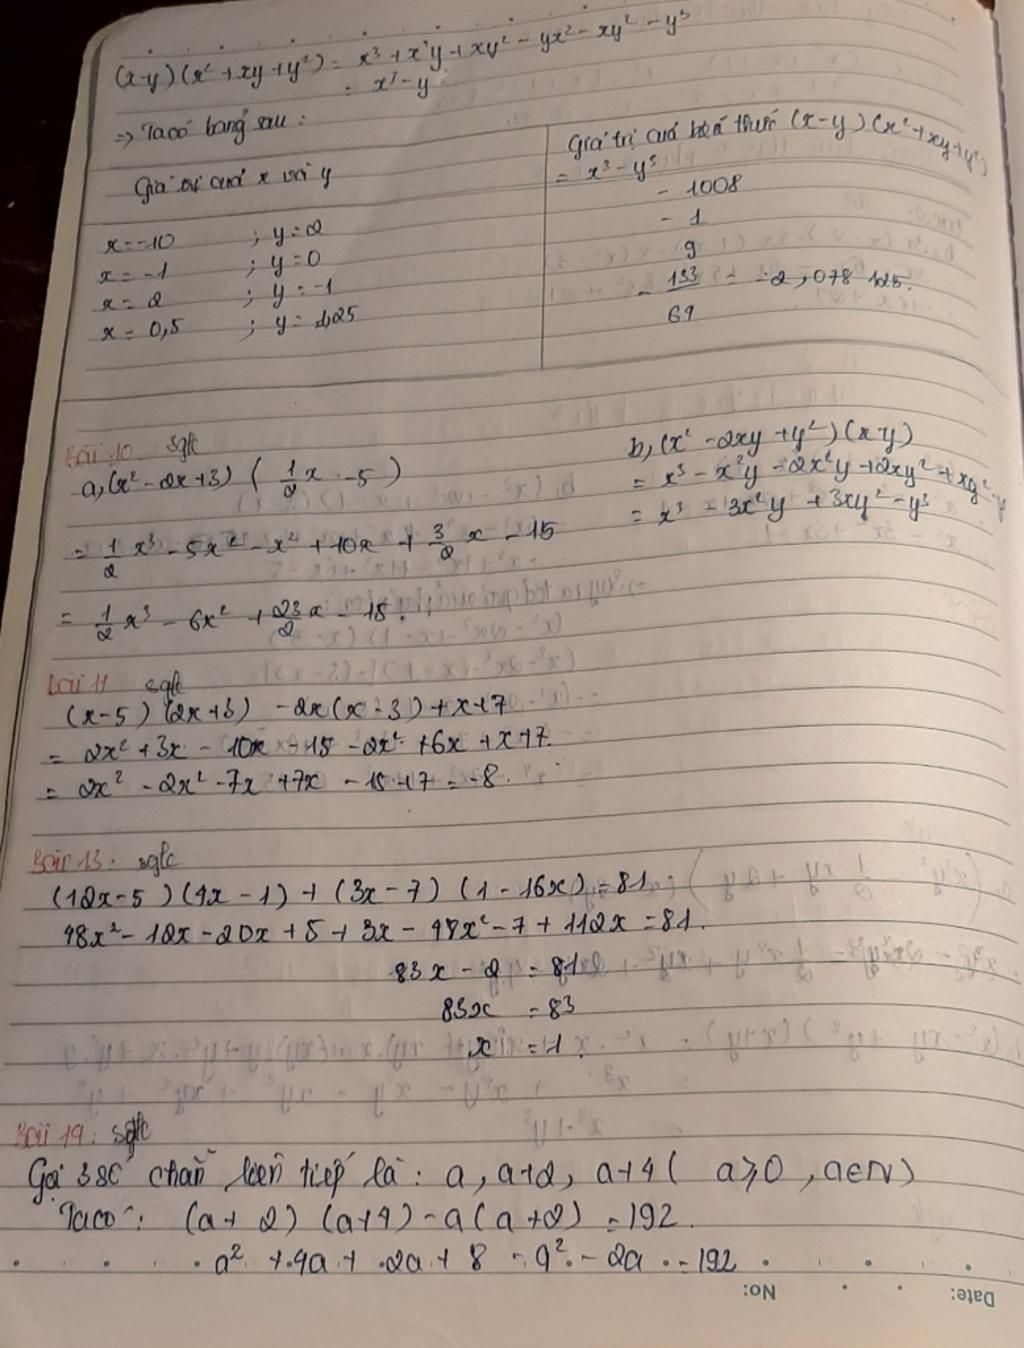 (x-y)(x²+xy+y²) = x³+x²y+xy²-yx²-xy²-y³
= x³-y
=> Ta có bảng sau:
Giá trị của x và y
Giá trị của biểu thức (x-y)(x²+xy+y²)
= x³-y³
x=-10 ; y=2
-1008
x=-1 ; y=0
-1
x=2 ; y=-1
9
x=0,5 ; y=1,25
-133/64 = -2,078125.
Bài 10 sgk
a, (x²-2x+3)(1/2x-5)
= 1/2x³-5x²-x²+10x+3/2x-15
= 1/2x³-6x²+23/2x-15.
b, (x²-2xy+y²)(x-y)
= x³-x²y-2x²y+2xy²+xy²-y
= x³-3x²y+3xy²-y³
Bài 11 sgk
(x-5)(2x+3)-2x(x-3)+x+7
= 2x²+3x-10x-15-2x²+6x+x+7
= 2x²-2x²-7x+7x-15+7=-8.
Bài 13: sgk
(12x-5)(4x-1)+(3x-7)(1-16x)=81
48x²-12x-20x+5+3x-48x²-7+112x=81.
83x-2=81
83x=83
x=1.
Bài 14: sgk
Gọi 3 số chẵn liên tiếp là: a, a+2, a+4 (a≥0, a∈N)
Ta có: (a+2)(a+4)-a(a+2)=192.
a²+4a+2a+8-a²-2a=192
Date: No: